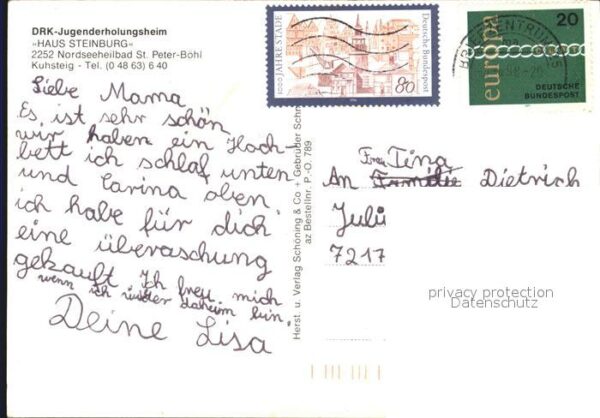 DRK-Jugenderholungsheim
»HAUS STEINBURG«
2252 Nordseeheilbad St. Peter-Böhl
Kuhsteig - Tel. (0 48 63) 6 40
Liebe Mama
Es ist sehr schön
wir haben ein Hoch-
bett ich schlaf unten
und Carina oben
ich habe für dich
eine überaschung
gekauft Ich frey mich
wenn ich wieder daheim bin
Deine Lisa
Herst. u. Verlag Schöning & Co + Gebrüder Schm
az Bestellnr. P.-O. 789
1000 JAHRE STADE
Deutsche Bundespost
80
europa
20
DEUTSCHE
BUNDESPOST
BRIEFZENTRUM
Frau Tina
An Familie Dietrich
7217
privacy protection
Datenschutz